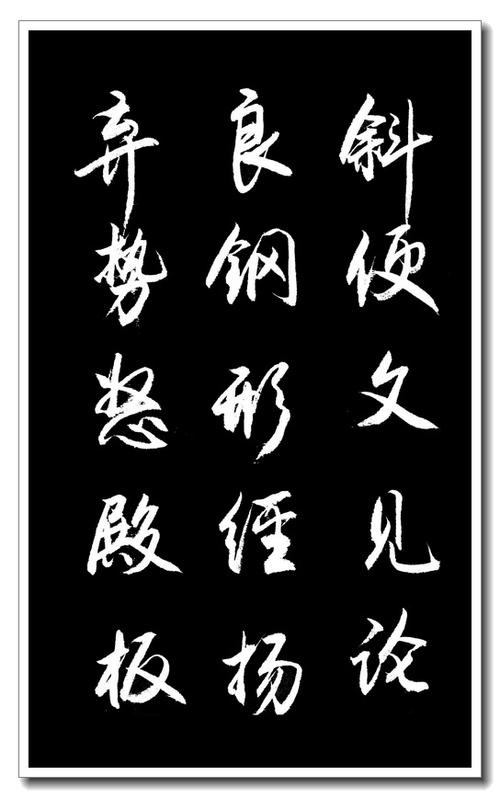 斜便文见论
良钢形经扬
弃势怒殿板